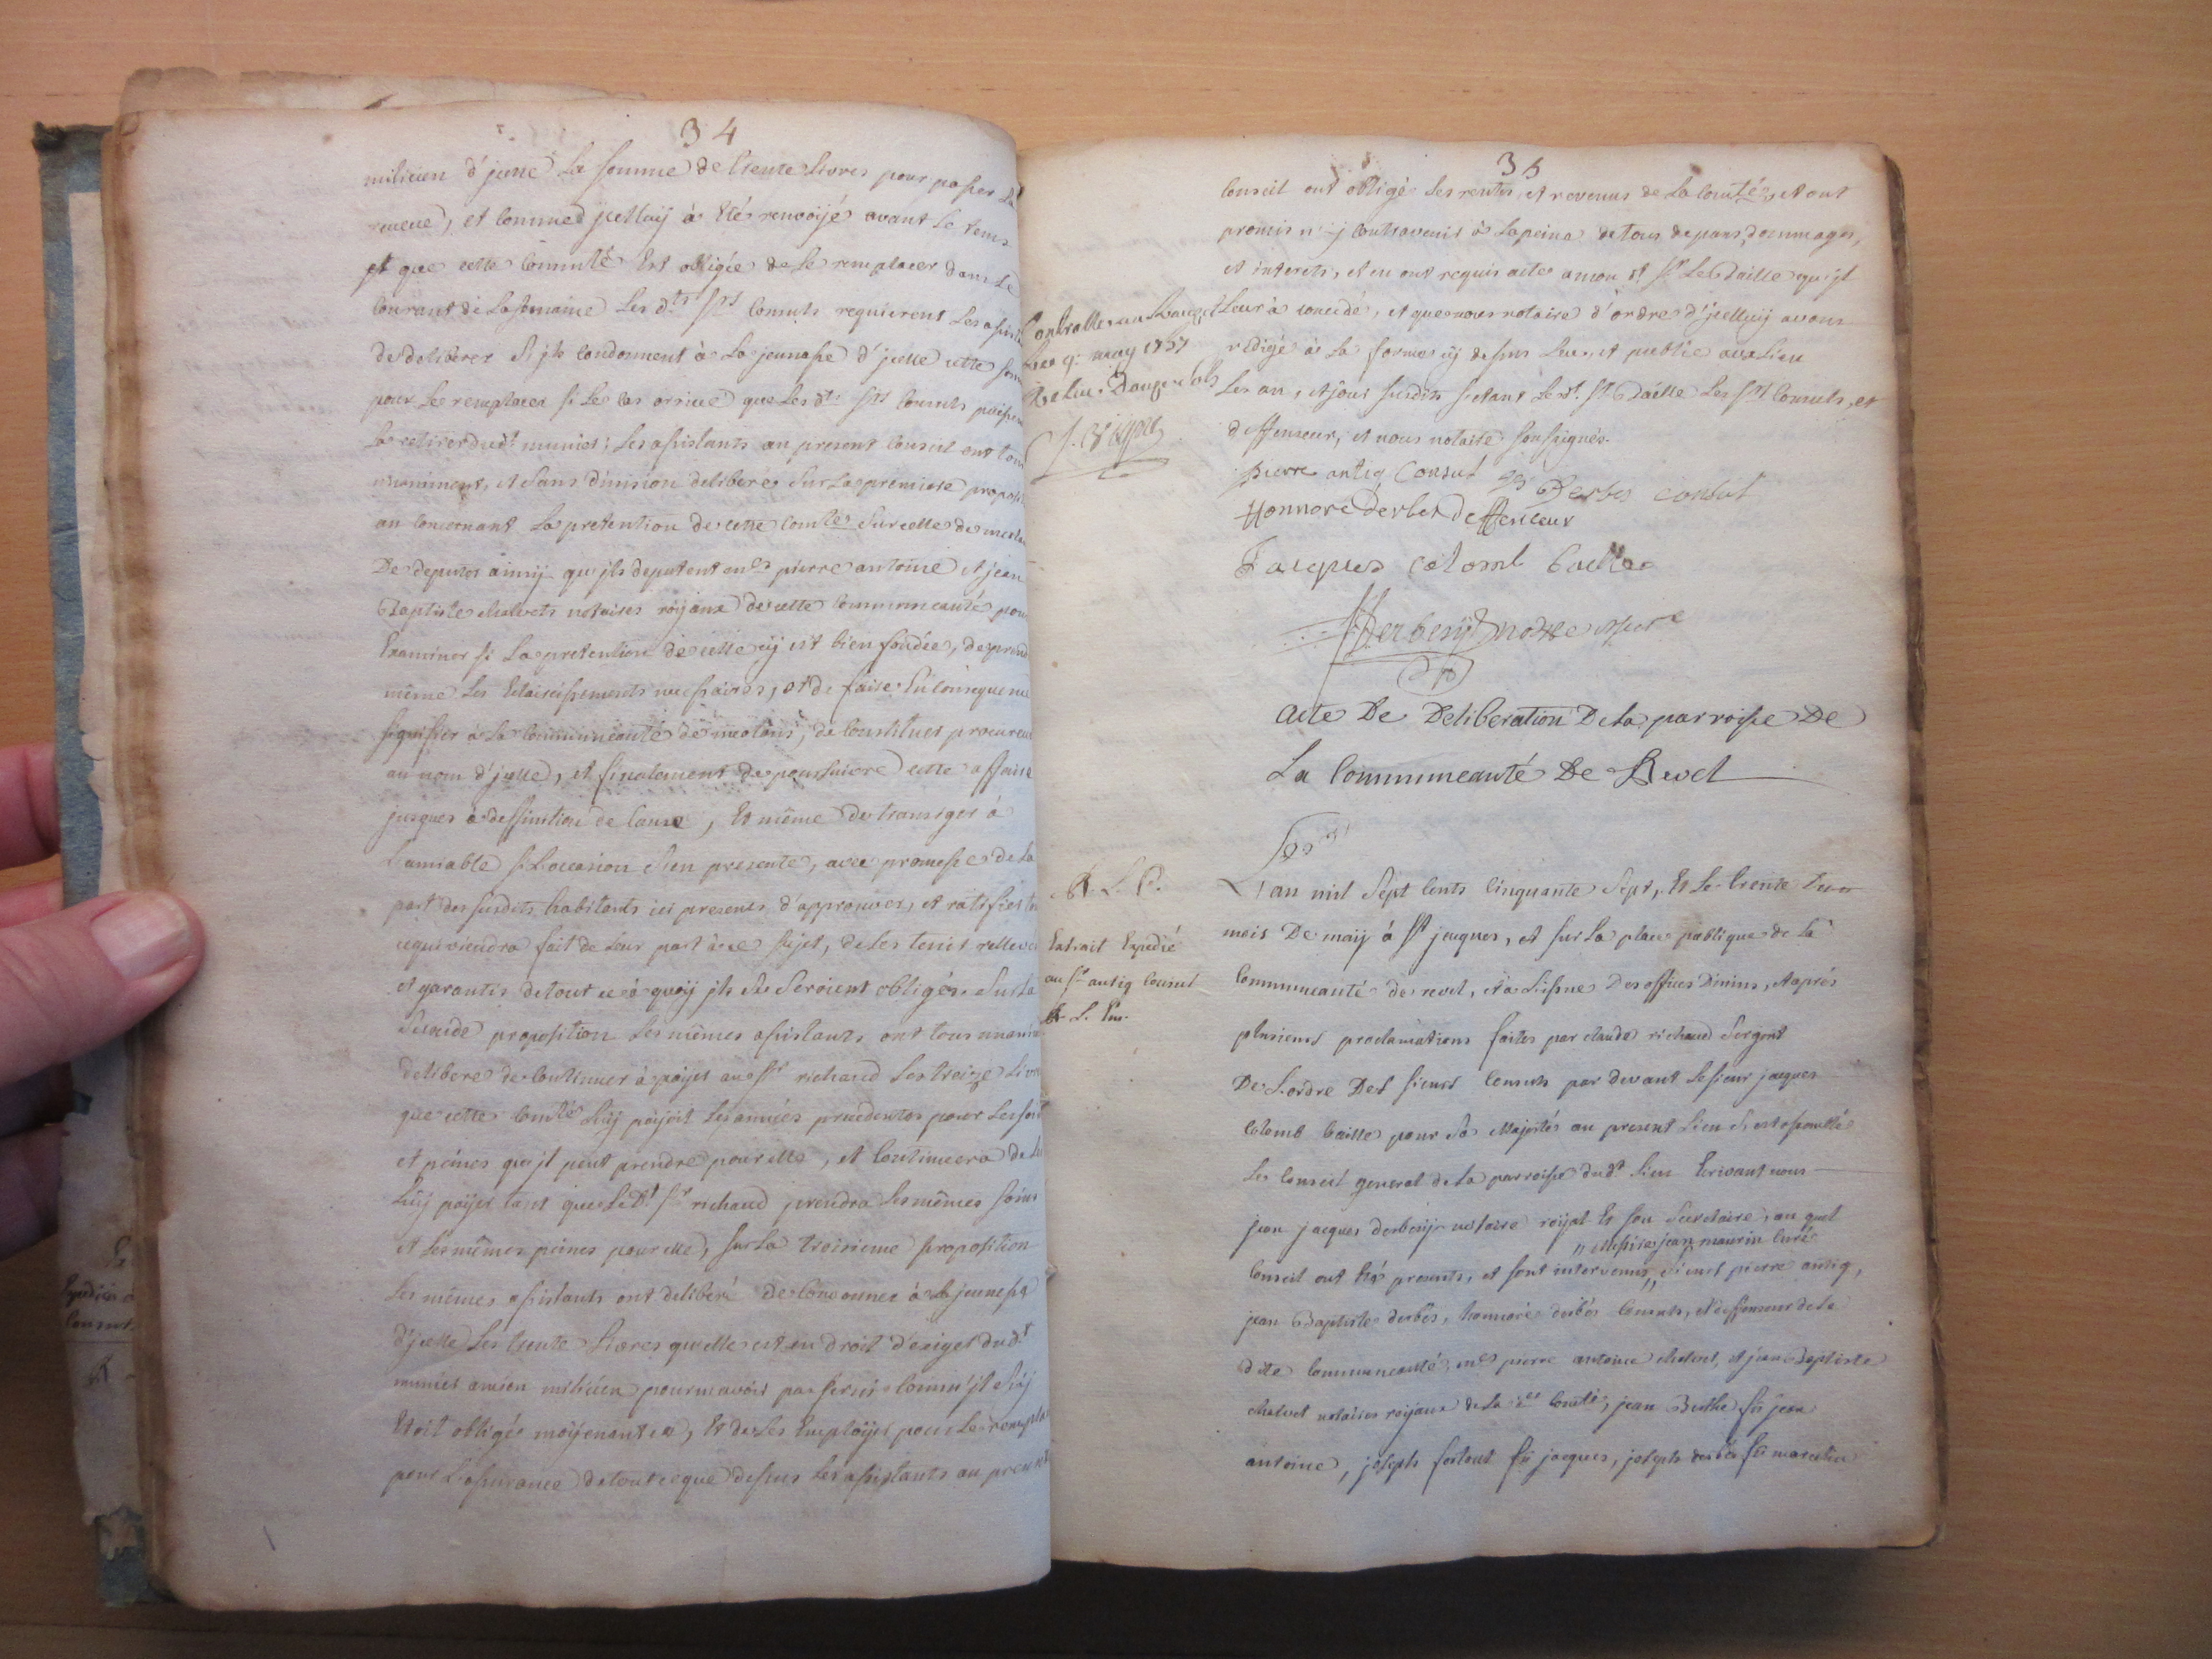 34
milicien d'jcelle La somme de trente Livres pour passer La
reveue, et comme d'jcelluij à Eté renvoijé avant Le tems
et que cette Commté Est obligée de Le remplacer dans Le
Courant de La semaine Les d.ts srs Consuls requierent Les assist
de deliberer si jls condonnent à La jeunesse d'jcelle cette som
pour Le remplacer si Le cas arrive que Les dts srs Consuls puissen
La retirer dudt munier; Les assistants au present Conseil ont tous
unaniment, et sans division deliberé sur La premiere proposi
en concernant La pretention de cette Comté sur celle de meolan
De deputer ainsij qu'jls deputent mes pierre antoine et jean
Baptiste chalvets notaires roijaux de cette Communeauté pour
Examiner si La pretention de cette cij est bien fondée, de prend
même Les Eclaircissements necessaires, et de faire En consequence
signifier à La Communeauté de meolans, de constituer procureur
au nom d'jcelle, et finalement de poursuivre cette affaire
jusques à deffinition de Cause, Et même de transiger à
L'amiable si L'occasion s'en presente, avec promesse de La
part des susdits habitants ici presents d'approuver, et ratifier to
ce qui viendra fait de Leur part à ce sujet, de Les tenir relleves
et garantis de tout ce à quoij jls se seroient obligés. Sur La
seconde proposition Les mêmes assistants ont tous unanim
deliberé de Continuer à paijer au sr richaud Les treize Livre
que cette Comté Luij paijoit Les années precedentes pour Les soin
et peines qu'jl peut prendre pour elle, et Continuera de
Luij paijer tant que Le dt sr richaud prendra Les mêmes soins
et Les mêmes peines pour elle, sur La troisieme proposition
Les mêmes assistants ont deliberé De Condonner à La jeunesse
d'jcelle Les trente Livres qu'elle est en droit d'exiger dudt
munier ancien milicien pour n'avoir pas servi Comm'jl s'ij
Etoit obligé moijenant ce, Et de Les Emploijer pour Le rempla
pour L'assurance de tout ce que dessus Les assistants au present
35
Conseil ont obligé Les rentes, et revenus de La Comté, et ont
promis n'ij Contrevenir à La peine de tous depans, dommages,
et interets, et en ont requis acte a mon dt sr Le Baille qu'jl
Leur à concédé, et que nous notaire d'ordre d'jcelluij avons
redigé à La forme cij dessus Leu, et publié au Lieu
Les an, et jour susdits setant Le dt sr Baille Les srs Consuls, et
deffenseur, et nous notaire soussignés.
Controllé au Lauzet
Le 9 may 1757
Reçu Douze sols
pierre antiq Consul
Derbes consul
Honnoré derbes deffenceur
Jacques colomb baille
Derbesij notre
Acte De Deliberation De La parroisse De
La Communeauté De Revel
L'an mil Sept Cents Cinquante Sept, Et Le trente
mois De maij à st jacques, et sur La place publique de La
Communeauté de revel, et à L'issue Des offices Divins, et après
plusieurs proclamations faites par claude richaud sergent
De L'ordre Des sieurs Consuls par devant Le sieur jacques
Colomb baille pour Sa Majesté au present Lieu s'est assemblé
Le Conseil general de La parroisse dudt Lieu Ecrivant nous
jean jacques derbesij notaire roijal Et son Secretaire, au quel
" Messire jean maurin Curé
Conseil ont Eté presents, et sont intervenus " sieurs pierre antiq,
jean Baptiste derbes, honnoré derbés Consuls, et deffenseur de La
dite Communeauté, mes pierre antoine chalvet, et jean Baptiste
chalvet notaires roijaux de La de Comté, jean Buthe fû jean
antoine, joseph fortoul fû jacques, joseph derbés fû marcelin
R. L. P.
Extrait Expedié
au sr antiq Consul
R. L. Em.